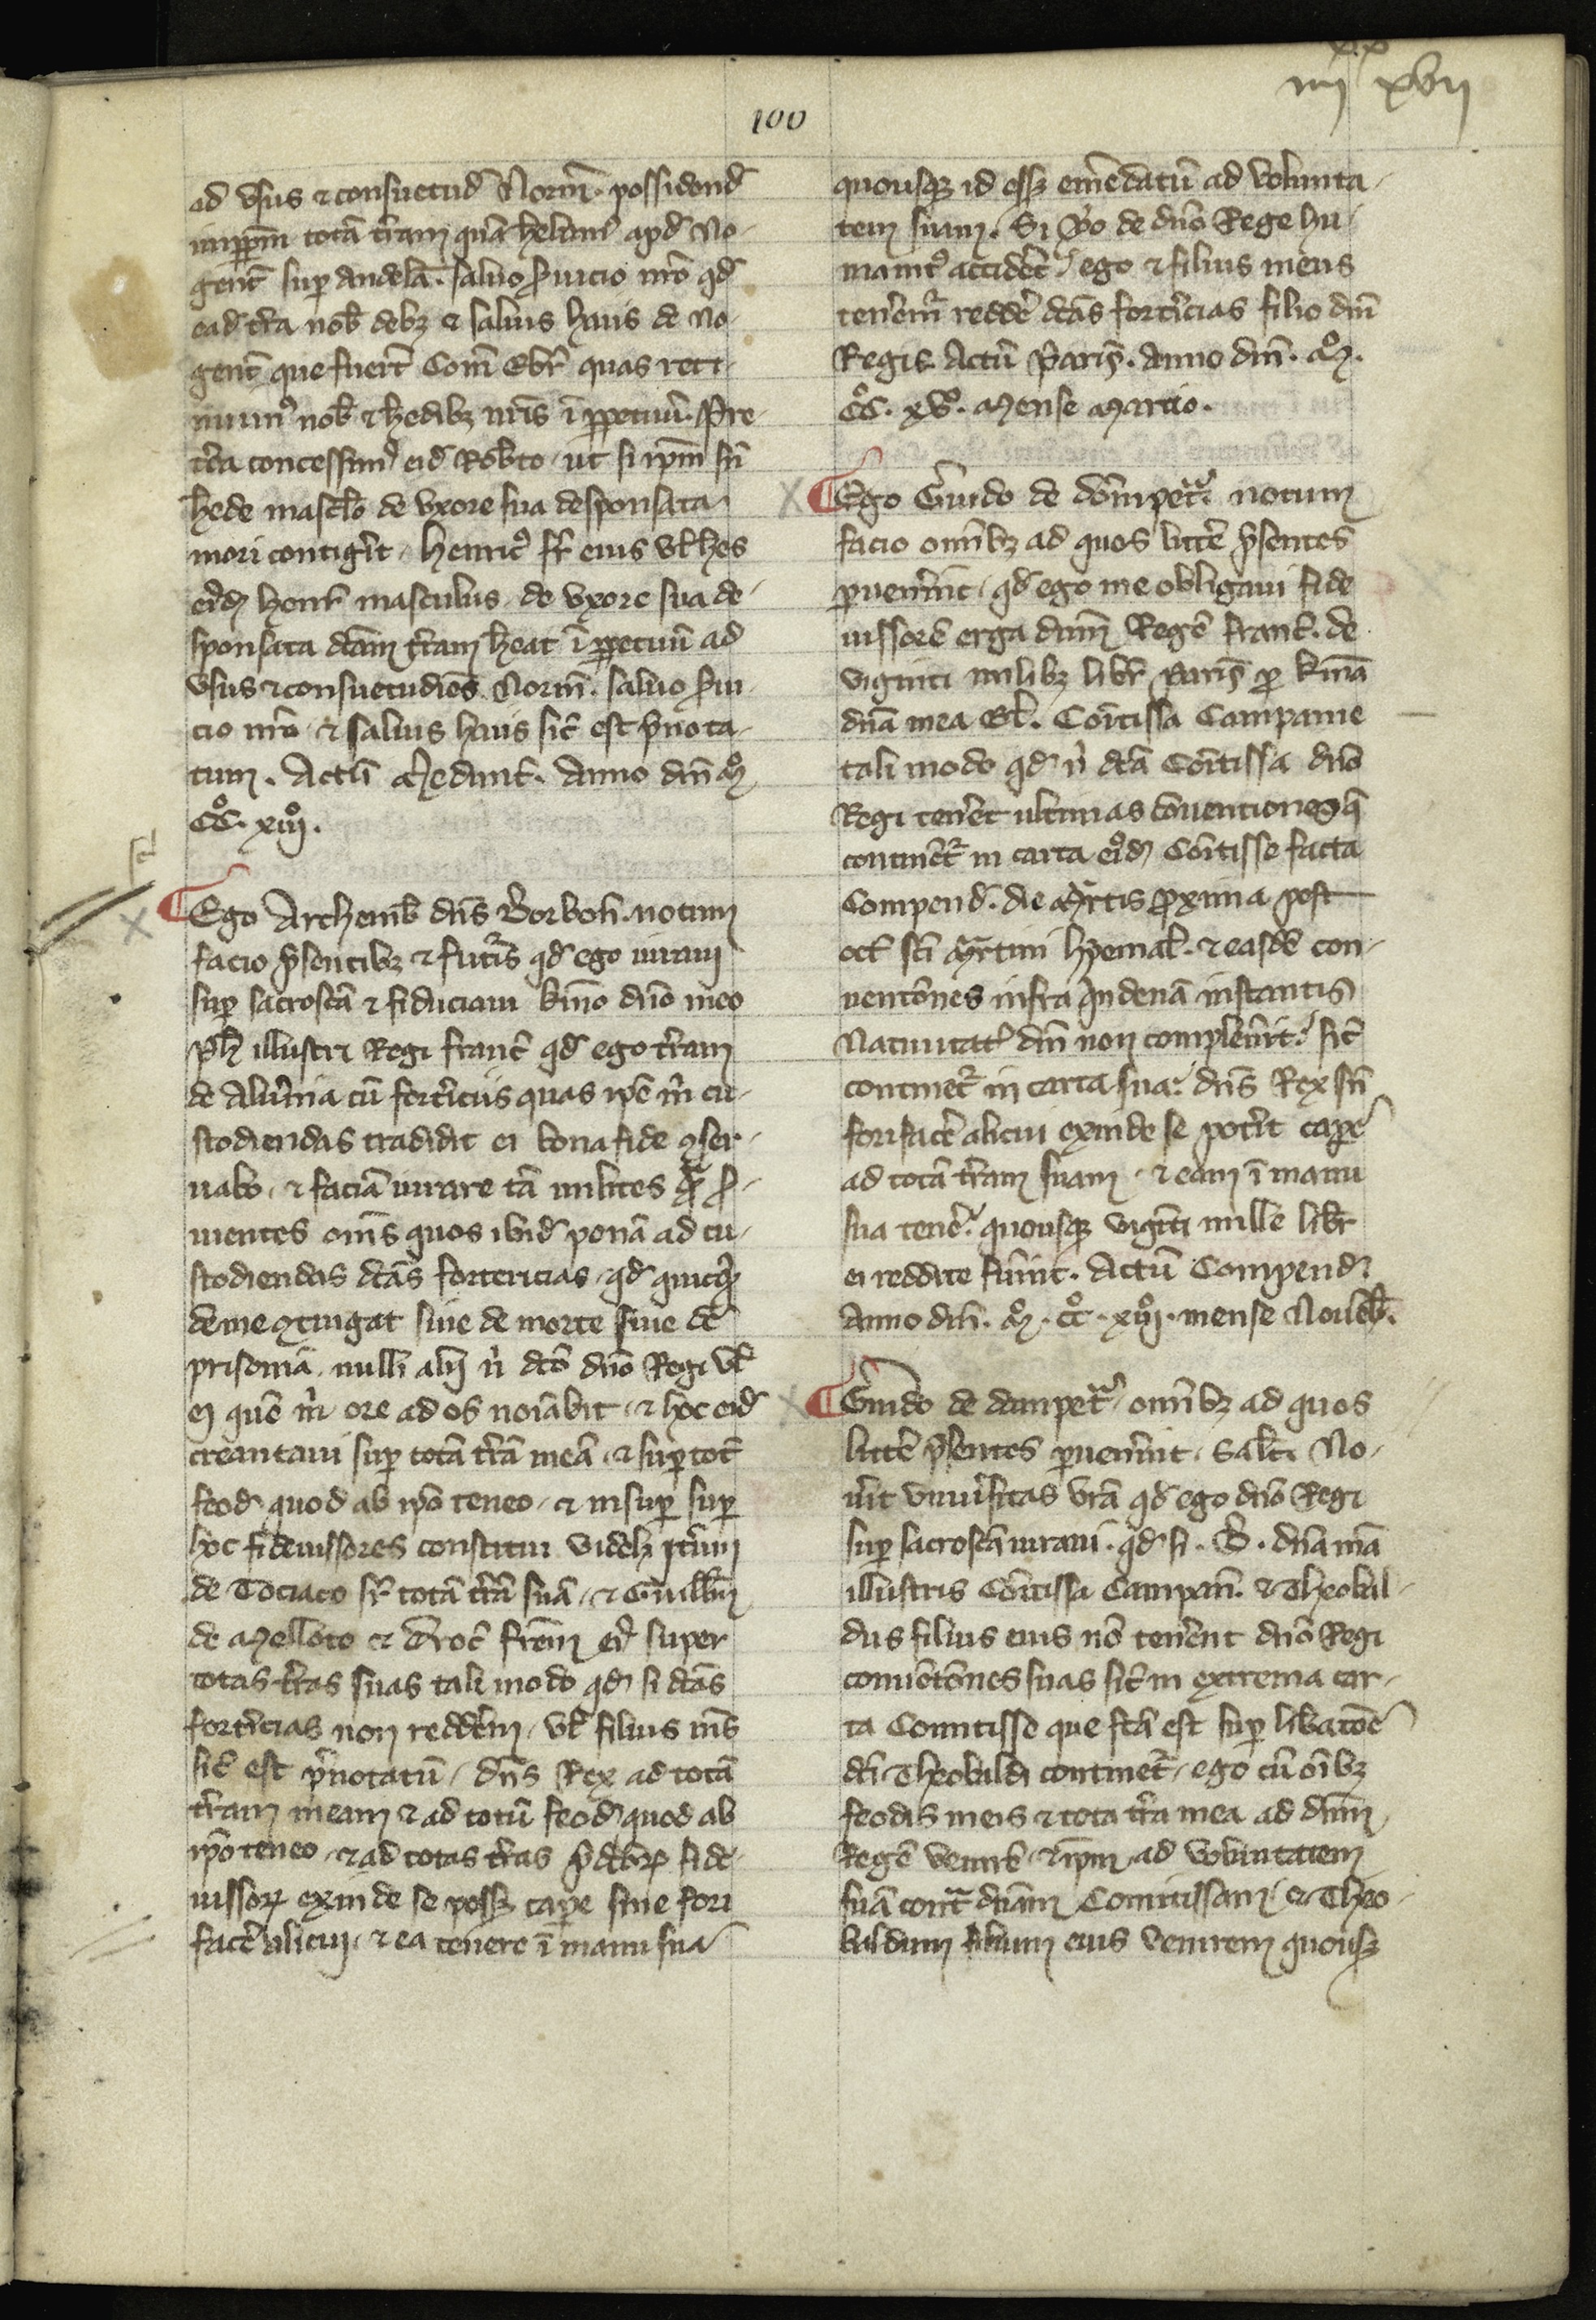 iiij xx xvij
100
ad vsus ⁊ consuetud̄ Norm̄. possidend̄
imꝑpm̄ totā tr̄am quā helium̄ apd̄ No-
gent̄ suꝑ andelā. saluo ẜuicio nr̄o qd̄
ead̄ tr̄a nob̄ debꝫ ⁊ saluis haiis de No-
gent̄ que fuer̄t Com̄ Ebr̄ quas reti-
nuimꝰ nob̄ ⁊ hedibꝫ nr̄is ī ꝑpetuū. Pre-
t̄ea concessimꝰ eid̄ Rob̄to. ut si ip̄m sn̄
hede mascl̄o de vxore sua desponsata
mori contiḡit. henricꝰ fr̄ eius vl̄ hes
eiꝰdē henr̄ masculus. de vxore sua de-
sponsata dc̄am tr̄am heat ī ꝑpetuū ad
vsus ⁊ consuetudīes Norm̄. saluo ẜui-
cio nr̄o ⁊ saluis haiis sic̄ est p̄nota-
tum. Actū Medunt̄. Anno dn̄i Mº
CCº. xiijº.
Ego Archemb̄ dn̄s Borbon̄. notum
facio p̄sentibꝫ ⁊ fut̄is qd̄ ego iuraui
suꝑ sacroscā ⁊ fiduciaui kmo dn̄o meo
Ph̄ illustri Regi franc̄ qd̄ ego tr̄am
de Aluernia cū fort̄iciis quas ip̄e m̄ cu-
stodiendas tradidit ei bona fide ꝯser-
uabo. ⁊ faciā iurare tā milites q̄ ẜ-
uientes om̄s quos ibid̄ ponā ad cu-
stodiendas dc̄as fortericias. qd̄ quicq̄d
de me ꝯtingat siue de morte siue de
prisoniā. nulli alij n̄ dc̄o dn̄o Regi vl̄
ei quē m̄ ore ad os noīabit. ⁊ hoc eid̄
creantaui suꝑ totā tr̄ā meā. ⁊ suꝑ tot̄
feod̄ quod ab ip̄o teneo. ⁊ insuꝑ suꝑ
hoc fideiussores constitui videlꝫ It̄ium
de Tociaco sr̄ totā tr̄ā suā. ⁊ Guill̄m
de Melloto ⁊ Droc̄ frēm eiꝰ super
totas tr̄as suas tali modo qd̄ si dc̄as
fort̄icias non redderem. vl̄ filius mꝰs
sic̄ est p̄notatū. dn̄s Rex ad totā
tr̄am meam ⁊ ad totū feod̄ quod ab
ip̄o teneo. ⁊ ad totas tr̄as p̄dc̄oꝝ fide-
iussoꝝ exinde se possꝫ caꝑe sine fori
fac̄e alicui. ⁊ ea tenere ī manu sua
quousqꝫ id essꝫ emēdatū ad volunta-
tem suam. Si v̄o de dn̄o Rege hu-
manitꝰ accider̄t. ego ⁊ filius meus
tenēm̄ redde dc̄as fort̄icias filio dn̄i
Regis. Actū Paris̄. Anno dn̄i. Mº.
CCº. xvº. Mense Marcio.
Ego Guido de Dōmpetr̄ notum
facio om̄ibꝫ ad quos litt̄e p̄sentes
ꝑuenerint. qd̄ ego me obligaui fide
iussorē erga dn̄m Regē franc̄. de
viginti milibꝫ libr̄ paris̄ ꝑ kmā
dn̄ā mea Bl̄. Comitissa Companie
tali modo qd̄ n̄ dc̄a Comitissa dn̄o
Regi teneret ultimas ꝯuentiones q̄
continet̄ in carta eiꝰdē Comitisse facta
Compend̄. die Martis proxima post
oct̄ sc̄i Martini hyemal̄. ⁊ easdē con-
uentiones infra q̄ndenā instantis
Natiuitatꝭ dn̄i non compleuerit. sic̄
continet̄ in carta sua. dn̄s Rex sn̄
forifac̄e alicui exinde se poter̄it caꝑe
ad totā tr̄am suam. ⁊ eam ī manu
sua tenē. quousqꝫ viginti mille libr̄
ei reddite fuerint. Actū Compend̄
Anno dn̄i. Mº. CCº. xiijº. mense Nouēb̄.
Guido de dampetr̄. om̄ibꝫ ad quos
litt̄e p̄sentes ꝑuenerint. Salt̄. No-
uerit vniuersitas vr̄a qd̄ ego dn̄o Regi
suꝑ sacroscā iuraui. qd̄ si. B. dn̄a mā
illustris Comitissa Campan̄. ⁊ Theobal-
dus filius eius nō tenerent dn̄o Regi
conuētiones suas sic̄ in extrema car-
ta Comitisse que fc̄a est suꝑ lib̄atōe
dc̄i Theobaldi continet̄. ego cū oībꝫ
feodis meis ⁊ tota tr̄a mea ad dn̄m
Regē venirē. ⁊ ip̄m ad voluntatem
suā contra dn̄am Comitissam ⁊ Theo-
baldum filium eius venirem quousqꝫ